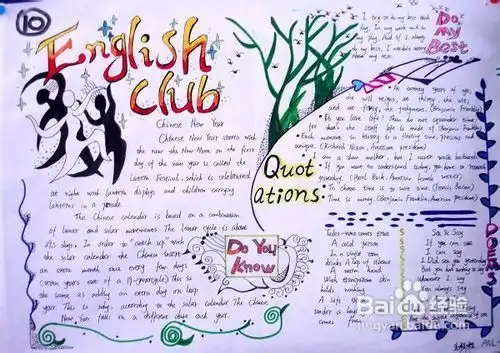 10
English
Club
Chinese New Year
Chinese New Year starts with
the new the Moon on the first
day of the new year is called the
Lantern Festival, which is celebrated
at night with lantern displays and children carrying
lanterns in a parade
The Chinese calendar is based on a combination
of lunar and solar movements. The lunar cycle is about
days. In order to "catch up" with
the solar calendar the Chinese insert
an extra month once every few years
(seven years out of a 19-yearcycle) This is
the same as adding an extra day on leap
year. This is why, according to the solar calendar. The Chinese
New Year falls on a different date each year.
Do You
Know
Quot
ations
Do
my
Best
I try to do my best each
day. In my work and in
my play. And if I always
do my best, I needn't worry
about my
At twenty years of age,
the will reigns at thirty the wit
and at forty the judgment. (Benjamin Franklin)
Do you love life? Then do not squander time
for that's the stuff life is made of (Benjamin Franklin)
Each moment in history is a fleeting time, precious and
unique. (Richard Nixon, American president)
I am a slow walker, but I never walk backwards
If you want to understand today, you have to research
yesterday. (Pearl Buck, American female writer)
To choose time is to save time. (Francis Bacon)
Time is money. (Benjamin Franklin, American president)
A cold person
In a single room
Drinks A cup of silence
A warm hand
With transparent skin
holds nothing
A safe
under a
comes
See & Say
If you can see
I can say
I Did
But you
If you
You always say
Baidu 经验
jingyan.baidu.com